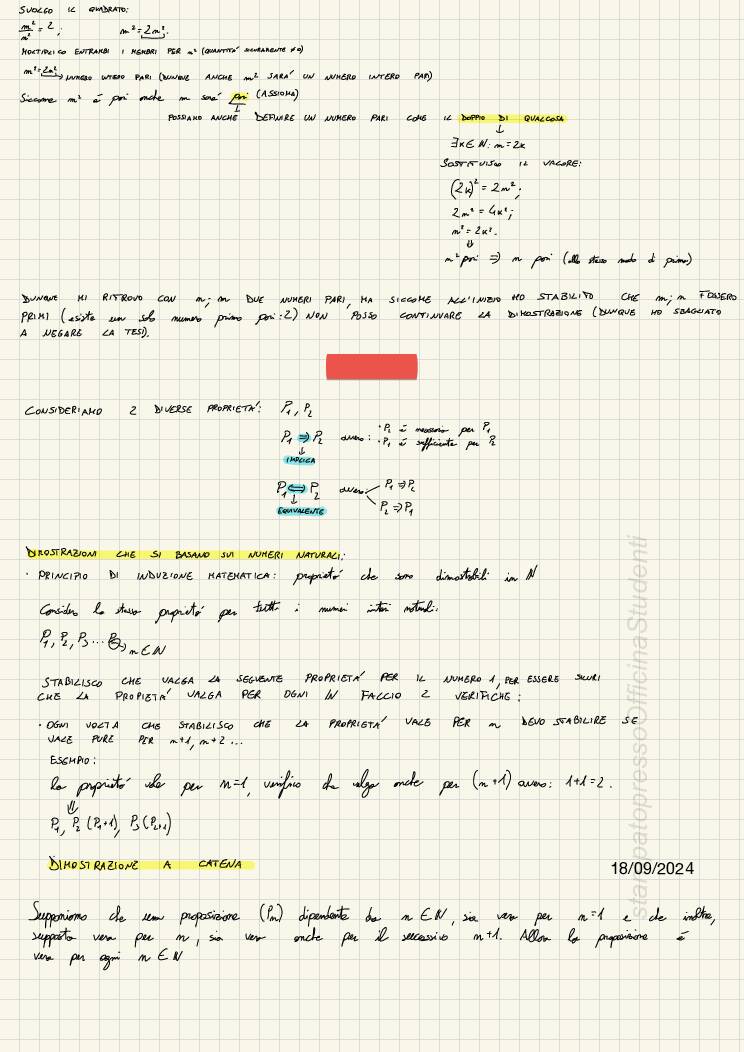 SVOLGO IL QUADRATO:
m²/n² = 2; m² = 2n².
MOLTIPLICO ENTRAMBI I MEMBRI PER n² (QUANTITÀ SICURAMENTE ≠0)
m² = 2n² → NUMERO INTERO PARI (DUNQUE ANCHE m² SARA' UN NUMERO INTERO PARI)
Siccome m² è pari anche m sarà pari (ASSIOMA)
↓
POSSIAMO ANCHE DEFINIRE UN NUMERO PARI COME IL DOPPIO DI QUALCOSA
↓
∃k∈ℕ: m=2k
SOSTITUISCO IL VALORE:
(2k)² = 2n²;
2n² = 4k²;
n² = 2k².
⇓
n² pari ⇒ n pari (allo stesso modo di prima)
DUNQUE MI RITROVO CON m; n DUE NUMERI PARI, MA SICCOME ALL'INIZIO HO STABILITO CHE m; n FOSSERO
PRIMI (esiste un solo numero primo pari: 2) NON POSSO CONTINUARE LA DIMOSTRAZIONE (DUNQUE HO SBAGLIATO
A NEGARE LA TESI).
CONSIDERIAMO 2 DIVERSE PROPRIETA': P₁, P₂
P₁ ⇒ P₂ ovvero: · P₂ è necessario per P₁
· P₁ è sufficiente per P₂
↓
IMPLICA
P₁ ⇔ P₂ ovvero: P₁ ⇒ P₂
P₂ ⇒ P₁
↓
EQUIVALENTE
DIMOSTRAZIONI CHE SI BASANO SUI NUMERI NATURALI:
· PRINCIPIO DI INDUZIONE MATEMATICA: proprietà che sono dimostabili in ℕ
Considero la stessa proprietà per tutti i numeri interi naturali:
P₁, P₂, P₃ ... Pₙ → n∈ℕ
STABILISCO CHE VALGA LA SEGUENTE PROPRIETA' PER IL NUMERO 1, PER ESSERE SICURI
CHE LA PROPIETA' VALGA PER OGNI ℕ FACCIO 2 VERIFICHE:
· OGNI VOLTA CHE STABILISCO CHE LA PROPRIETA' VALE PER n DEVO STABILIRE SE
VALE PURE PER n+1, n+2 ...
ESEMPIO:
la proprietà vale per n=1, verifico che valga anche per (n+1) ovvero: 1+1=2.
⇓
P₁, P₂ (P₁+1), P₃ (P₂+1)
DIMOSTRAZIONE A CATENA
18/09/2024
Supponiamo che una proposizione (Pₙ) dipendente da n∈ℕ, sia vera per n=1 e che inoltre,
supposta vera per n, sia vera anche per il successivo n+1. Allora la proposizione è
vera per ogni n∈ℕ
stampatopressoOfficinaStudenti